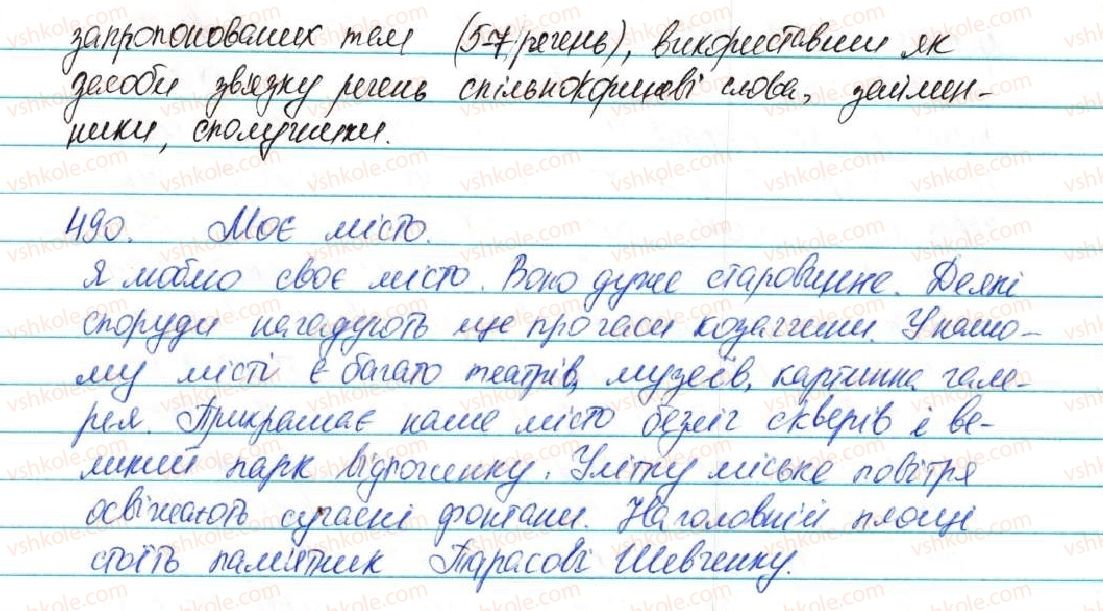 запропонованих тем (5-7 речень), використавши як
засоби звязку речень спільнокореневі слова, займен-
ники, сполучники.
490. Моє місто.
Я люблю своє місто. Воно дуже старовинне. Деякі
споруди нагадують ще про часи козаччини. У нашо-
му місті є багато театрів, музеїв, картинна гале-
рея. Прикрашає наше місто безліч скверів і ве-
ликий парк відпочинку. Улітку міське повітря
освіжають сучасні фонтани. На головній площі
стоїть памятник Тарасові Шевченку.